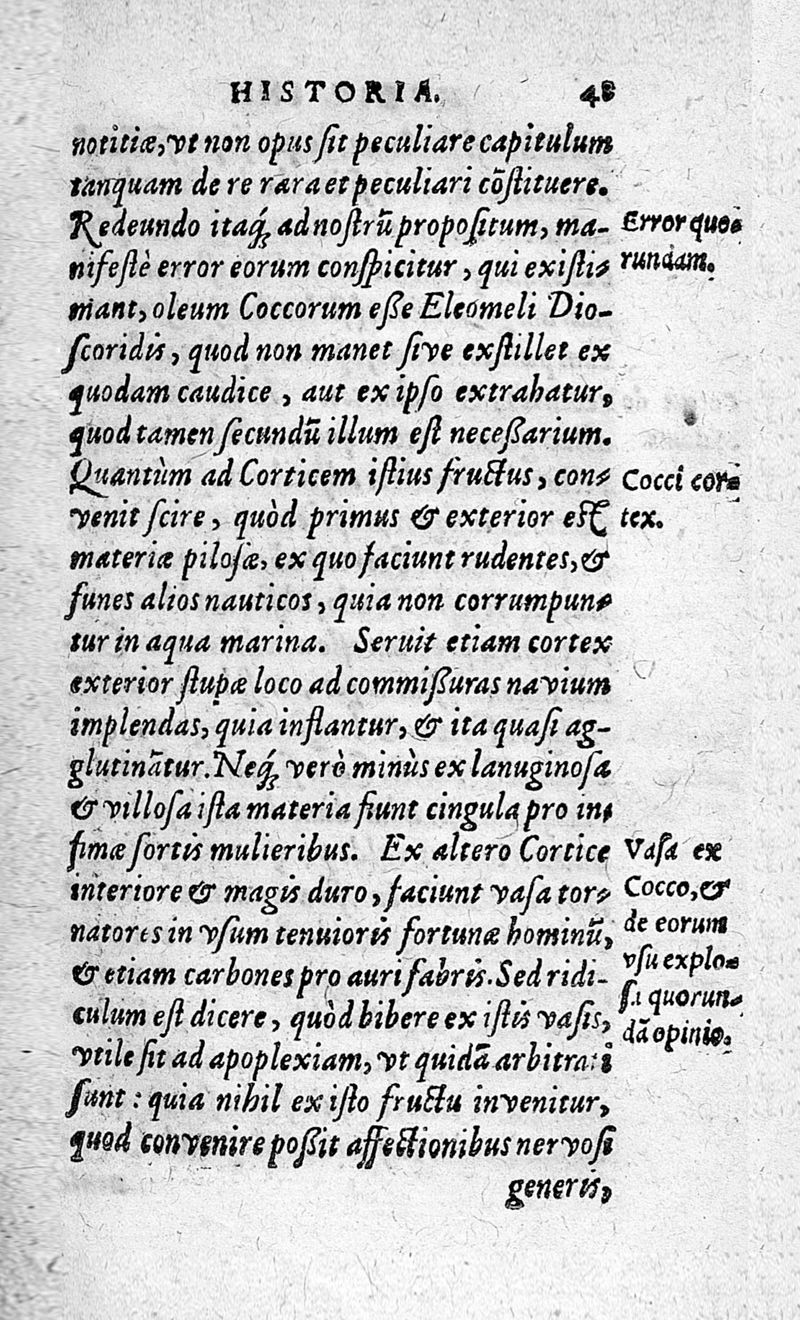 HISTORIA. 48
notitiæ, vt non opus ſit peculiare capitulum
tanquam de re rara et peculiari cõſtituere.
Redeundo itaq́ꝫ ad noſtrũ propoſitum, ma-
nifeſtè error eorum conſpicitur, qui exiſti-
mant, oleum Coccorum eſſe Eleomeli Dio-
ſcoridis, quod non manet ſive exſtillet ex
quodam caudice, aut ex ipſo extrahatur,
quod tamen ſecundũ illum eſt neceſſarium.
Quantùm ad Corticem iſtius fructus, con-
venit ſcire, quòd primus & exterior eſt
materiæ piloſæ, ex quo faciunt rudentes, &
funes alios nauticos, quia non corrumpun-
tur in aqua marina. Seruit etiam cortex
exterior ſtupæ loco ad commiſſuras navium
implendas, quia inflantur, & ita quaſi ag-
glutinãtur. Neq́ꝫ verò minùs ex lanuginoſa
& villoſa iſta materia fiunt cingula pro in-
fimæ ſortis mulieribus. Ex altero Cortice
interiore & magis duro, faciunt vaſa tor-
natores in vſum tenuioris fortunæ hominũ,
& etiam carbones pro aurifabris. Sed ridi-
culum eſt dicere, quòd bibere ex iſtis vaſis,
vtile ſit ad apoplexiam, vt quidã arbitrati
ſunt: quia nihil ex iſto fructu invenitur,
quod convenire poſſit affectionibus nervoſi
generis,
Error quo-
rundam.
Cocci cor-
tex.
Vaſa ex
Cocco, &
de eorum
vſu explo-
ſa quorun-
dã opinio.